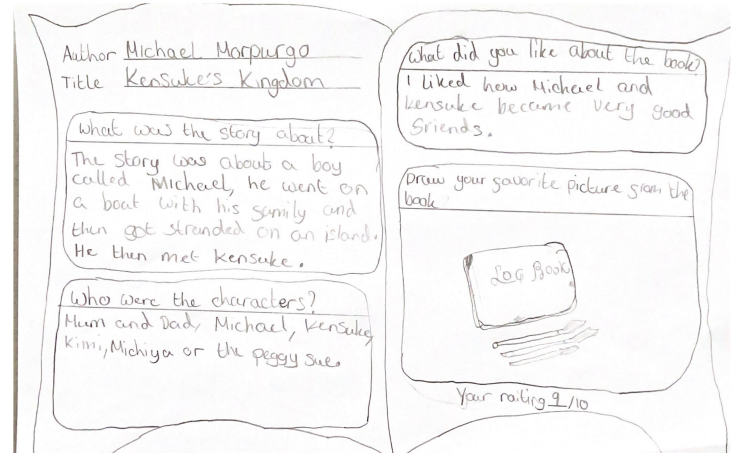 Author Michael Morpurgo
Title Kensuke's Kingdom
What was the story about?
The story was about a boy
called Michael, he went on
a boat with his family and
then got stranded on an island.
He then met Kensuke.
Who were the characters?
Mum and Dad, Michael, Kensuke,
Kimi, Michiya or the peggy sue.
What did you like about the book?
I liked how Michael and
Kensuke became very good
friends.
Draw your favorite picture from the
book
Log Book
Your raiting 9/10